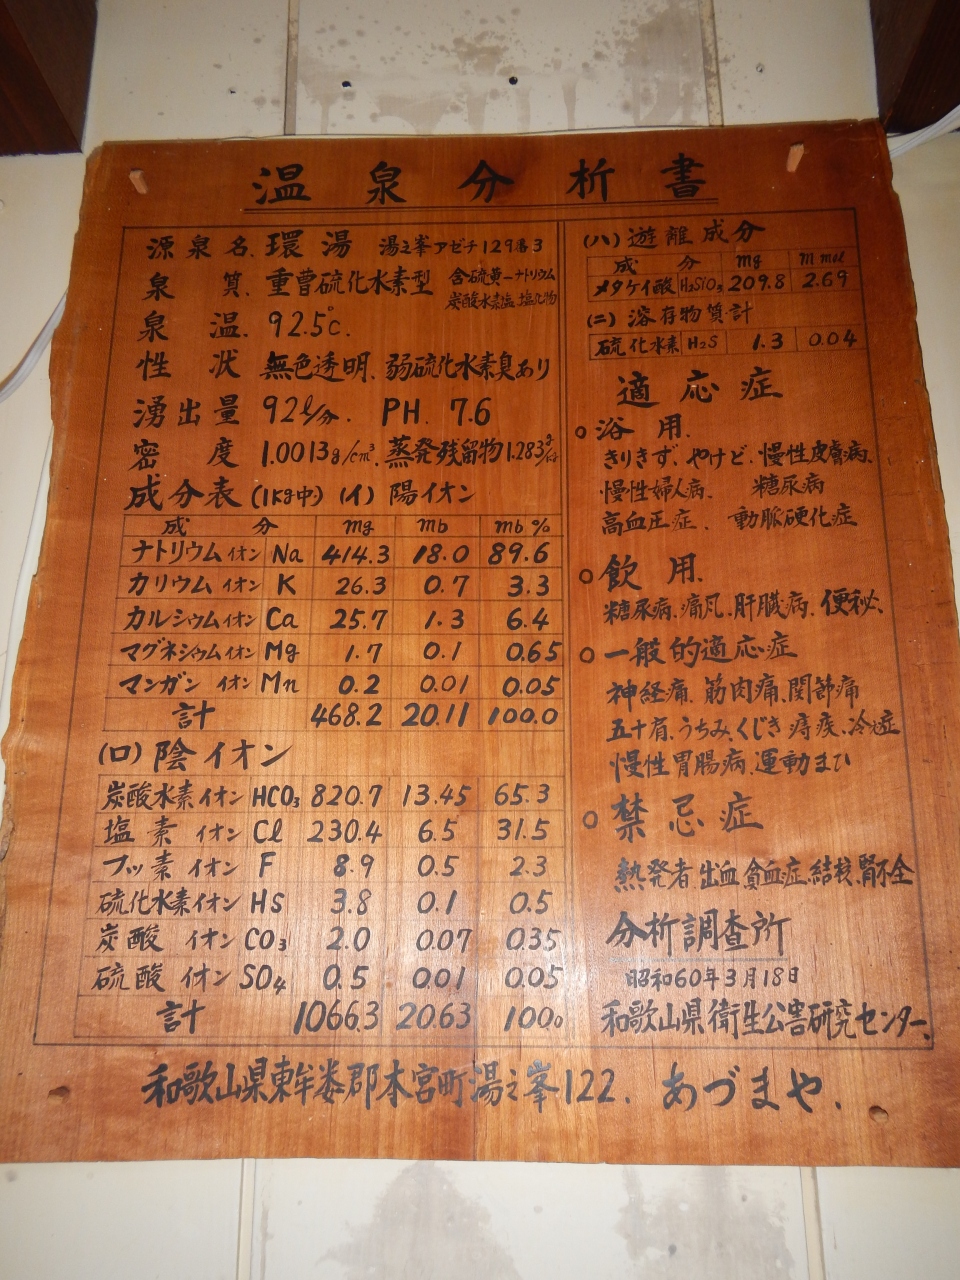 温泉分析書
源泉名.環湯 湯之峯アゼチ129番3
泉質.重曹硫化水素型 含硫黄ーナトリウム
炭酸水素塩.塩化物
泉温.92.5℃.
性状 無色透明.弱硫化水素臭あり
湧出量 92ℓ/分. PH. 7.6
密度 1.0013g/cm³.蒸発残留物1.283g/kg
成分表(1kg中)(イ)陽イオン
成分 mg mb mb%
ナトリウムイオン Na 414.3 18.0 89.6
カリウムイオン K 26.3 0.7 3.3
カルシウムイオン Ca 25.7 1.3 6.4
マグネシウムイオン Mg 1.7 0.1 0.65
マンガンイオン Mn 0.2 0.01 0.05
計 468.2 20.11 100.0
(ロ)陰イオン
炭酸水素イオン HCO₃ 820.7 13.45 65.3
塩素イオン Cl 230.4 6.5 31.5
フッ素イオン F 8.9 0.5 2.3
硫化水素イオン HS 3.8 0.1 0.5
炭酸イオン CO₃ 2.0 0.07 0.35
硫酸イオン SO₄ 0.5 0.01 0.05
計 1066.3 20.63 100.0
(ハ)遊離成分
成分 mg m mol
メタケイ酸 H₂SiO₃ 209.8 2.69
(ニ)溶存物質計
硫化水素 H₂S 1.3 0.04
適応症
○浴用.
きりきず.やけど.慢性皮膚病.
慢性婦人病. 糖尿病
高血圧症. 動脈硬化症
○飲用.
糖尿病.痛風.肝臓病.便秘.
○一般的適応症
神経痛.筋肉痛.関節痛
五十肩.うちみ.くじき.痔疾.冷え症
慢性胃腸病.運動まひ
○禁忌症
熱発者.出血.貧血症.結核.腎不全
分析調査所
昭和60年3月18日
和歌山県衛生公害研究センター.
和歌山県東牟婁郡本宮町湯之峯122. あづまや.